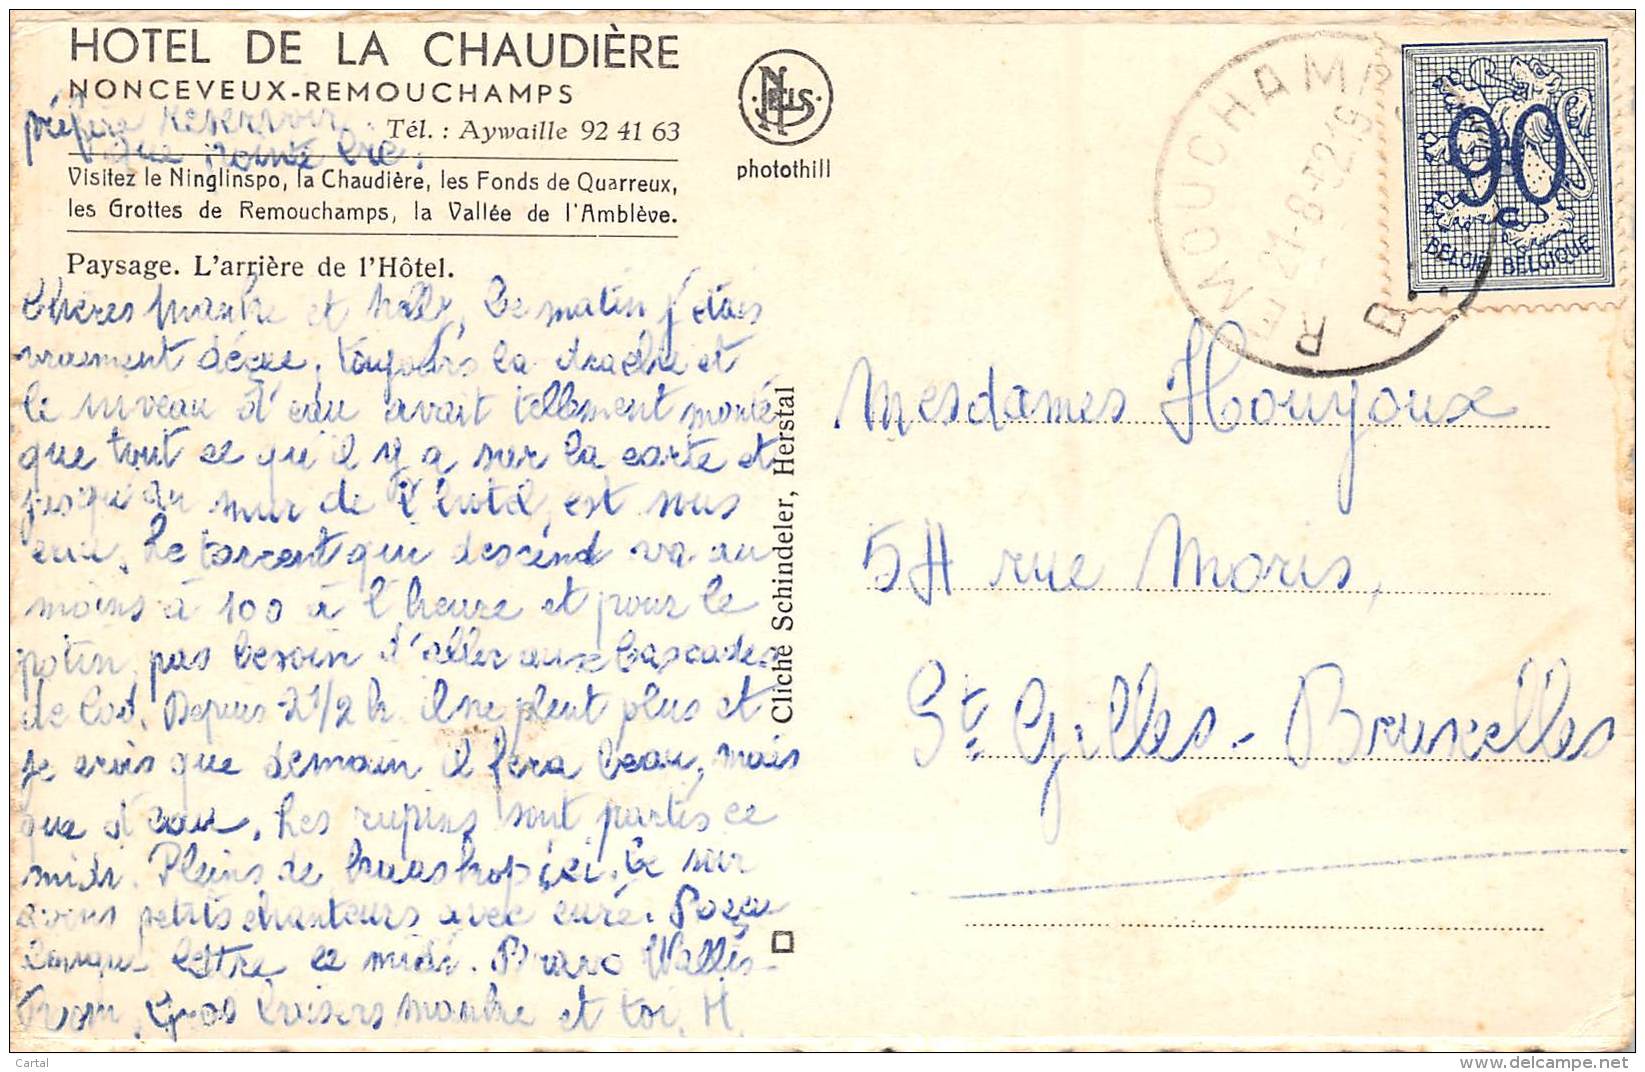 HOTEL DE LA CHAUDIÈRE
NONCEVEUX-REMOUCHAMPS
préfère reservoir
Tél. : Aywaille 92 41 63
que
Visitez le Ninglinspo, la Chaudière, les Fonds de Quarreux,
les Grottes de Remouchamps, la Vallée de l'Amblève.
Paysage. L'arrière de l'Hôtel.
Chères et , Ce matin j'étais
vraiment déçue, toujours la drache et
le niveau d'eau avait tellement monté
que tout ce qu'il y a sur la carte et
jusqu'au mur de l'hotel, est sous
eau. Le torrent qui descend va au
moins à 100 à l'heure et pour le
potin, pas besoin d'aller aux Cascades
de Coo. Depuis 2 1/2 h. il ne pleut plus et
je crois que demain il fera beau, mais
que d'eau. Les rupins sont partis ce
midi. Pleins de ici. Ce soir
avons petits chanteurs avec curé. Reçu
longue lettre ce midi. Bravo
Gros baisers et toi. M.
NELS
photothill
Cliché Schindeler, Herstal
REMOUCHAMPS
21-8-52 19
90
c
BELGIE BELGIQUE
Mesdames Houyoux
54 rue Moris,
St. Gilles - Bruxelles
Cartal
www.delcampe.net